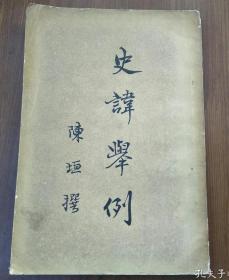 史諱舉例
陳垣撰
孔夫子